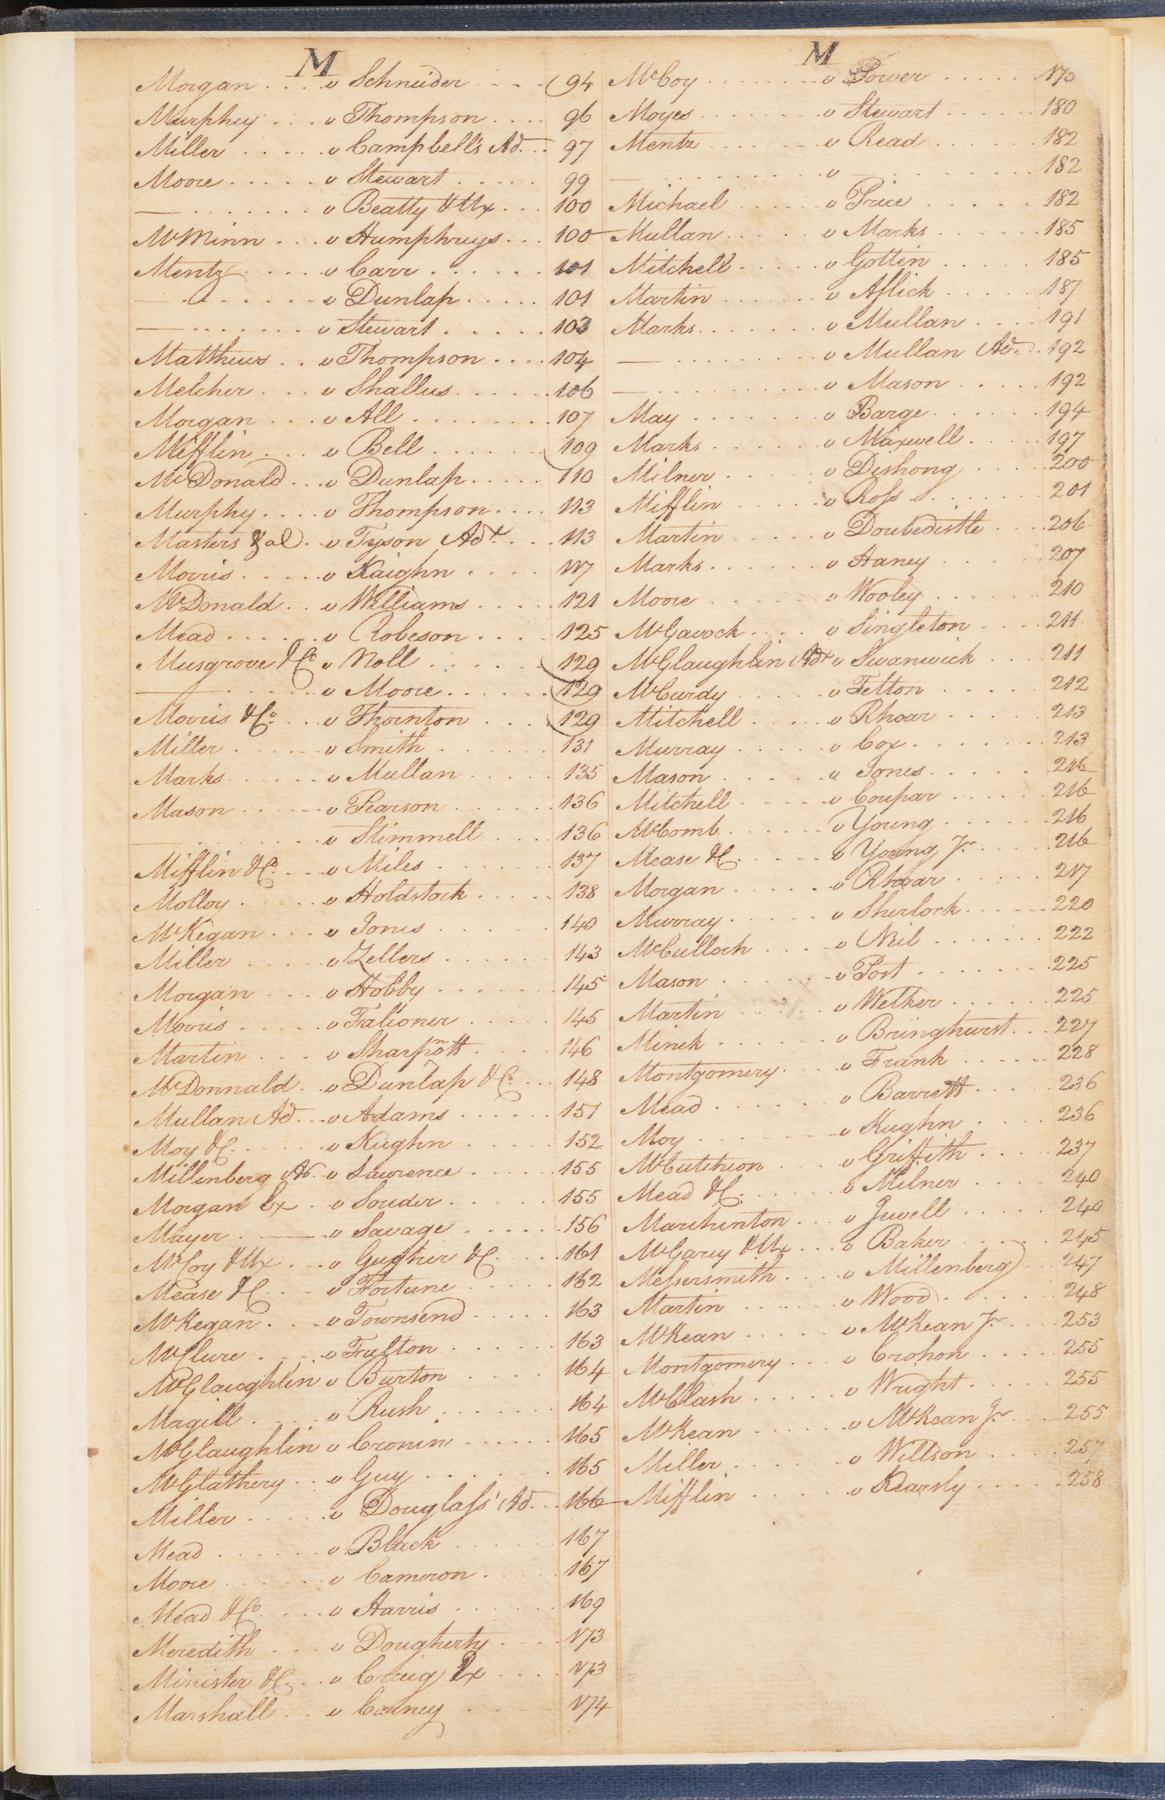 M
Morgan .... v Schneider .... 94
Murphey ... v Thompson .... 96
Miller ..... v Campbell's Ad. .. 97
Moore ..... v Stewart ..... 99
— ....... v Beatty & Ux ... 100
McMinn ... v Humphreys ... 100
Mentz .... v Carr ...... 101
— ...... v Dunlap ..... 101
— ...... v Stewart ...... 103
Matthews .. v Thompson .... 104
Melcher ... v Shallus ..... 106
Morgan ... v All ....... 107
Mifflin ... v Bell ...... 109
McDonald ... v Dunlap ..... 110
Murphy .... v Thompson .... 113
Masters & al .. v Tyson Adr. ... 113
Morris ..... v Kaighn .... 117
McDonald .. v Williams ..... 121
Mead ..... v Robeson .... 125
Musgrove & Co v Noll ..... 129
— ....... v Moore ..... 129
Morris & Co. ... v Thornton .... 129
Miller ..... v Smith ..... 131
Marks ..... v Mullan ..... 135
Mason .... v Pearson ..... 136
...... v Stimmell .... 136
Mifflin & Co. ... v Miles ..... 137
Molloy .... v Holdstock .... 138
McKegan ... v Jones ..... 140
Miller .... v Zellers ..... 143
Morgan ... v Hobby ..... 145
Morris .... v Falioner .... 145
Martin .... v Sharpnott .... 146
McDonnald .. v Dunlap & Co. ... 148
Mullan Ad .. v Adams ..... 151
Moy & C. .... v Kughn .... 152
Millenberg Ad. v Lawrence .... 155
Morgan Ex .. v Souder ..... 155
Mayer .. — v Savage ..... 156
McCoy & Ux ... v & C .... 161
Mease & C ... v Fortune .... 162
McKegan ... v Townsend .... 163
McClure .... v Fulton ..... 163
McGlaughlin v Burton ..... 164
Magill .... v Rush ..... 164
McGlaughlin v Cronin ..... 165
McGlathery .. v Guy ...... 165
Miller .... v Douglass' Ad. .. 166
Mead ...... v Black ..... 167
Moore ..... v Cameron .... 167
Mead & Co. ... v Harris ..... 169
Meredith ... v Dougherty .... 173
Minister & C. .. v Craig Ex .... 173
Marshall ... v Carney .... 174
M
McCoy ...... v Power ..... 175
Moyes ...... v Stewart ..... 180
Mentz ...... v Read ...... 182
— ........ v ....... 182
Michael ..... v Price ..... 182
Mullan ..... v Marks ..... 185
Mitchell ..... v Gottin ..... 185
Martin ..... v Aflick ..... 187
Marks ...... v Mullan .... 191
— ........ v Mullan Ad. .. 192
— ........ v Mason ..... 192
May ....... v Barge ..... 194
Marks ...... v Maxwell .... 197
Milner ..... v Dishong .... 200
Mifflin ..... v Ross ..... 201
Martin ..... v Doubedistle ... 206
Marks ...... v Haney ..... 207
Moore ...... v Wooley .... 210
McGavock .... v Singleton .... 211
McGlaughlin Adr v Swanwick .... 211
McCurdy ..... v Felton ..... 212
Mitchell ..... v Rhoar ..... 213
Murray ..... v Cox ...... 213
Mason ..... v Jones ..... 216
Mitchell ..... v Coupar ..... 216
McComb ..... v Young ..... 216
Mease & C. .... v Young Jr .... 216
Morgan ..... v Rhoar ..... 217
Murray ..... v Sherlock .... 220
McCulloch .... v Neil ...... 222
Mason ...... v Port ...... 225
Martin ..... v Welker ..... 225
Minik ...... v Bringhurst ... 227
Montgomery ... v Frank ..... 228
Mead ...... v Barrett .... 236
Moy ...... v Kughn .... 236
McCutchion ... v Griffith .... 237
Mead & C. .... v Milner ..... 240
Marchinton ... v Jewell ..... 240
McGarey & Ux ... v Baker ..... 245
Messersmith ... v Millenberg .. 247
Martin ..... v Wood ..... 248
McKean ..... v McKean Jr ... 253
Montgomery ... v Crohon .... 255
McClash ..... v Wright ..... 255
McKean ..... v McKean Jr ... 255
Miller ..... v Willson .... 257
Mifflin ..... v Kearsly .... 258